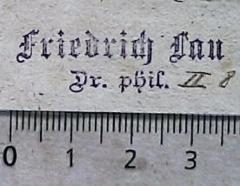 Friedrich Lau
Dr. phil. II 8
0 1 2 3